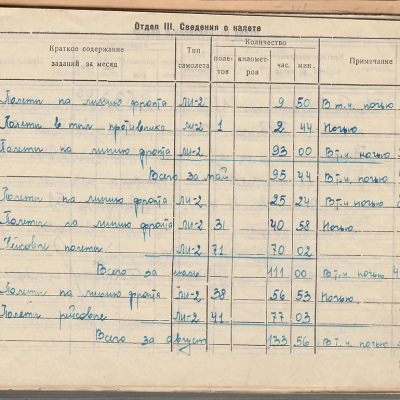 Отдел III. Сведения о налете
Краткое содержание заданий за месяц
Тип самолета
Количество
полетов
километров
час.
мин.
Примечание
Полеты на линию фронта ЛИ-2 9 50 В т.ч. ночью
Полеты в тыл противника ЛИ-2 1 2 44 Ночью
Полеты на линию фронта ЛИ-2 93 00 В т.ч. ночью
Всего за май 95 44 В т.ч. ночью
Полеты на линию фронта ЛИ-2 25 24 В т.ч. ночью
Полеты на линию фронта ЛИ-2 31 40 58 Ночью
Рейсовые полеты ЛИ-2 71 70 02
Всего за 111 00 В т.ч. ночью
Полеты на линию фронта ЛИ-2 38 56 53 Ночью
Полеты рейсовые ЛИ-2 41 77 03
Всего за август 133 56 В т.ч. ночью